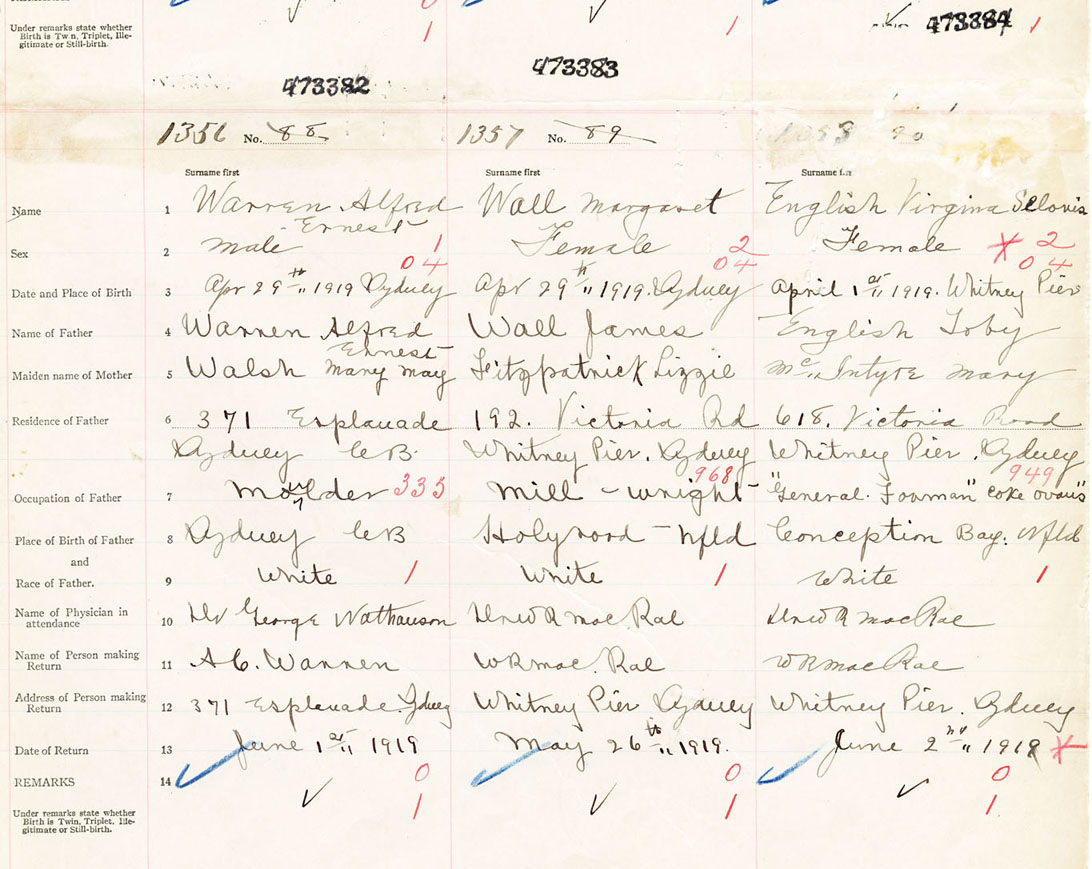 Under remarks state whether
Birth is Twin, Triplet, Ille-
gitimate or Still-birth.
1 1 473384 1
473382 473383
1356 No. 88 1357 No. 89 90
Surname first Surname first Surname first
Name 1 Warren Alfred Ernest Wall Margaret English Virgina Selovis
Sex 2 Male 1 Female 2 Female X 2
04 04 04
Date and Place of Birth 3 Apr 29th 1919 Sydney Apr 29th 1919. Sydney April 1st 1919. Whitney Pier
Name of Father 4 Warren Alfred Ernest Wall James English Toby
Maiden name of Mother 5 Walsh Mary May Fitzpatrick Lizzie McIntyre Mary
Residence of Father 6 371 Esplanade 192. Victoria Rd 618. Victoria Road
Sydney C.B. Whitney Pier. Sydney Whitney Pier. Sydney
Occupation of Father 7 Moulder 335 Mill-wright 968 "General. Forman" Coke ovans" 949
Place of Birth of Father 8 Sydney CB Holyrood - Nfld Conception Bay. Nfld
and
Race of Father. 9 White 1 White 1 White 1
Name of Physician in
attendance 10 Dr George Nathanson Dr W R MacRae Dr W R MacRae
Name of Person making
Return 11 A E. Warren W R MacRae W R MacRae
Address of Person making
Return 12 371 Esplanade. Sydney Whitney Pier Sydney Whitney Pier. Sydney
Date of Return 13 June 1st 1919 May 26th 1919. June 2nd 1919 X
REMARKS 14 0 0 0
Under remarks state whether
Birth is Twin, Triplet, Ille-
gitimate or Still-birth.
1 1 1